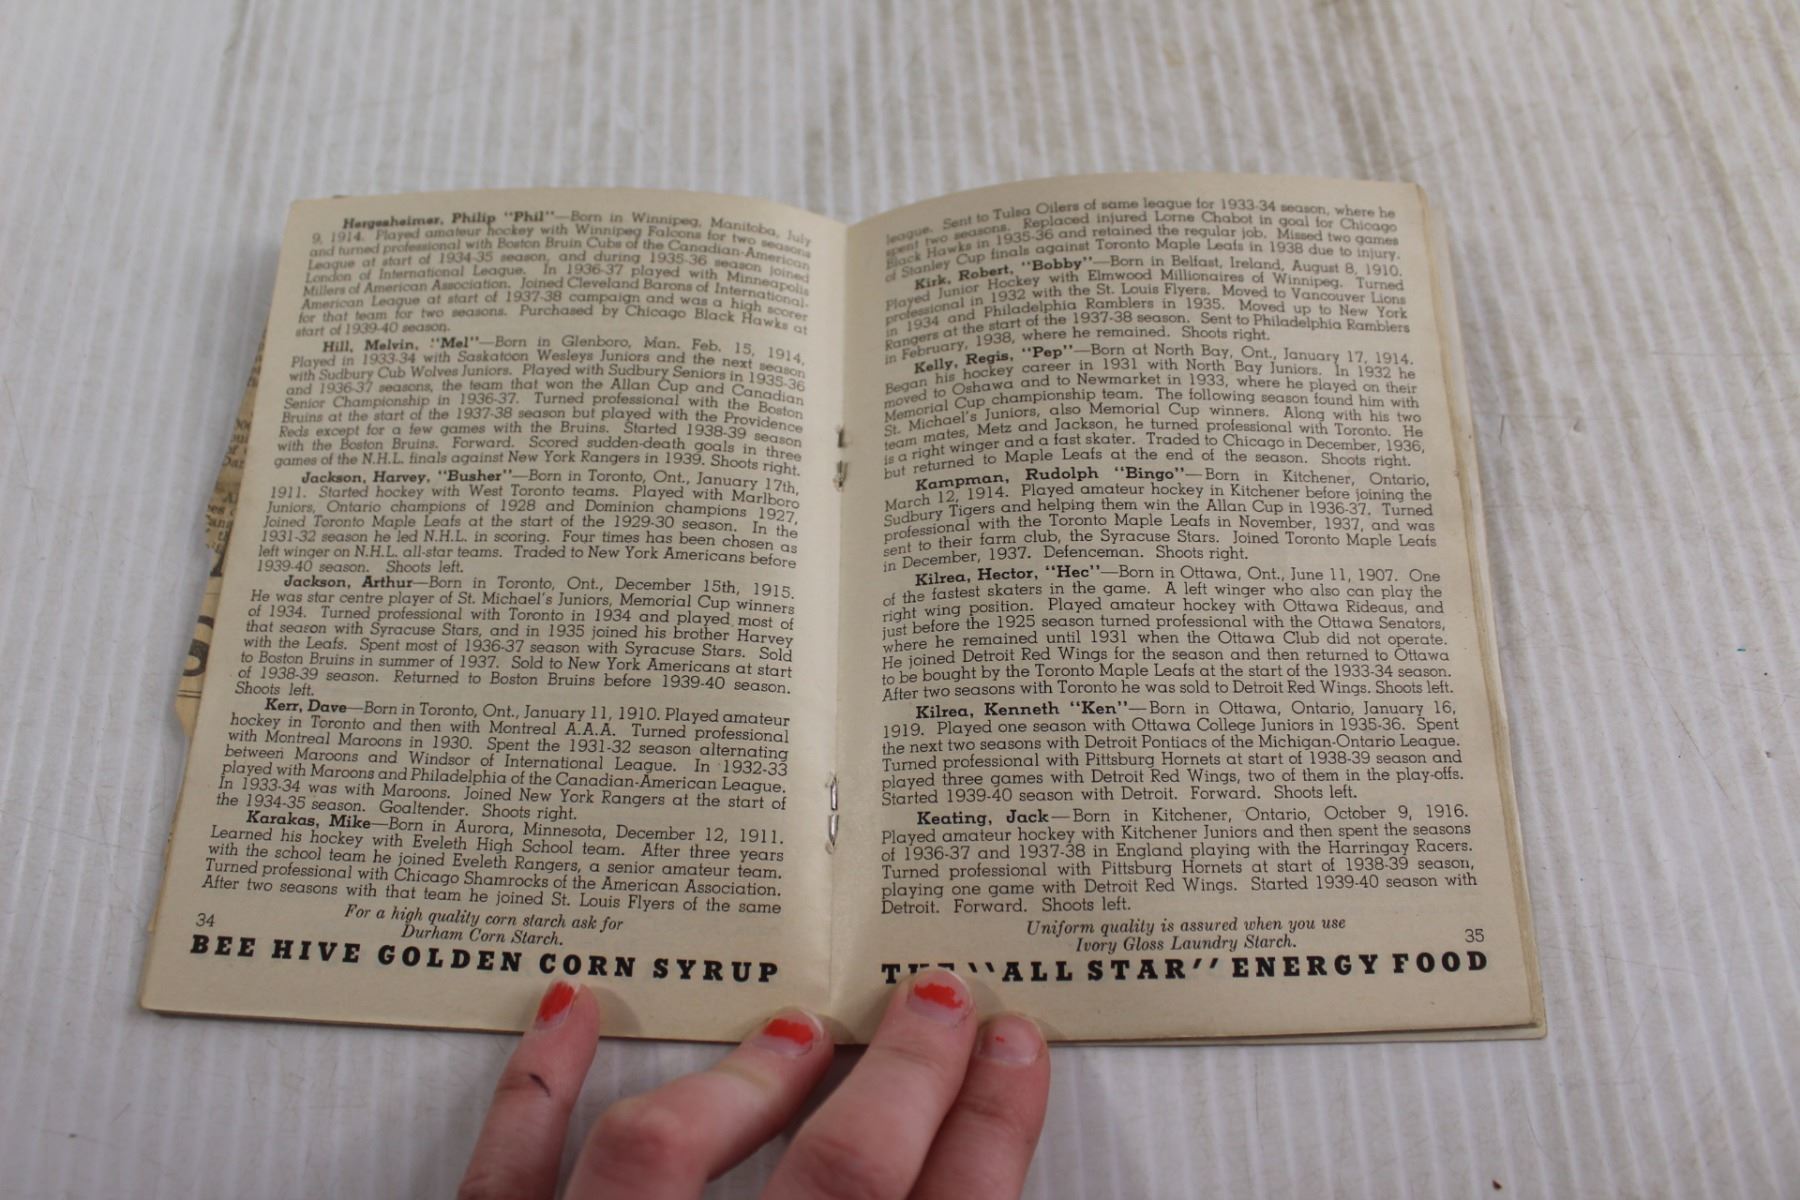 Hergesheimer, Philip "Phil"—Born in Winnipeg, Manitoba, July
9, 1914. Played amateur hockey with Winnipeg Falcons for two seasons
and turned professional with Boston Bruin Cubs of the Canadian-American
League at start of 1934-35 season, and during 1935-36 season joined
London of International League. In 1936-37 played with Minneapolis
Millers of American Association. Joined Cleveland Barons of International-
American League at start of 1937-38 campaign and was a high scorer
for that team for two seasons. Purchased by Chicago Black Hawks at
start of 1939-40 season.
Hill, Melvin, "Mel"—Born in Glenboro, Man. Feb. 15, 1914.
Played in 1933-34 with Saskatoon Wesleys Juniors and the next season
with Sudbury Cub Wolves Juniors. Played with Sudbury Seniors in 1935-36
and 1936-37 seasons, the team that won the Allan Cup and Canadian
Senior Championship in 1936-37. Turned professional with the Boston
Bruins at the start of the 1937-38 season but played with the Providence
Reds except for a few games with the Bruins. Started 1938-39 season
with the Boston Bruins. Forward. Scored sudden-death goals in three
games of the N.H.L. finals against New York Rangers in 1939. Shoots right.
Jackson, Harvey, "Busher"—Born in Toronto, Ont., January 17th,
1911. Started hockey with West Toronto teams. Played with Marlboro
Juniors, Ontario champions of 1928 and Dominion champions 1927,
Joined Toronto Maple Leafs at the start of the 1929-30 season. In the
1931-32 season he led N.H.L. in scoring. Four times has been chosen as
left winger on N.H.L. all-star teams. Traded to New York Americans before
1939-40 season. Shoots left.
Jackson, Arthur—Born in Toronto, Ont., December 15th, 1915.
He was star centre player of St. Michael's Juniors, Memorial Cup winners
of 1934. Turned professional with Toronto in 1934 and played most of
that season with Syracuse Stars, and in 1935 joined his brother Harvey
with the Leafs. Spent most of 1936-37 season with Syracuse Stars. Sold
to Boston Bruins in summer of 1937. Sold to New York Americans at start
of 1938-39 season. Returned to Boston Bruins before 1939-40 season.
Shoots left.
Kerr, Dave—Born in Toronto, Ont., January 11, 1910. Played amateur
hockey in Toronto and then with Montreal A.A.A. Turned professional
with Montreal Maroons in 1930. Spent the 1931-32 season alternating
between Maroons and Windsor of International League. In 1932-33
played with Maroons and Philadelphia of the Canadian-American League.
In 1933-34 was with Maroons. Joined New York Rangers at the start of
the 1934-35 season. Goaltender. Shoots right.
Karakas, Mike—Born in Aurora, Minnesota, December 12, 1911.
Learned his hockey with Eveleth High School team. After three years
with the school team he joined Eveleth Rangers, a senior amateur team.
Turned professional with Chicago Shamrocks of the American Association.
After two seasons with that team he joined St. Louis Flyers of the same
For a high quality corn starch ask for
Durham Corn Starch.
34
BEE HIVE GOLDEN CORN SYRUP
league. Sent to Tulsa Oilers of same league for 1933-34 season, where he
spent two seasons. Replaced injured Lorne Chabot in goal for Chicago
Black Hawks in 1935-36 and retained the regular job. Missed two games
of Stanley Cup finals against Toronto Maple Leafs in 1938 due to injury.
Kirk, Robert, "Bobby"—Born in Belfast, Ireland, August 8, 1910.
Played Junior Hockey with Elmwood Millionaires of Winnipeg. Turned
professional in 1932 with the St. Louis Flyers. Moved to Vancouver Lions
in 1934 and Philadelphia Ramblers in 1935. Moved up to New York
Rangers at the start of the 1937-38 season. Sent to Philadelphia Ramblers
in February, 1938, where he remained. Shoots right.
Kelly, Regis, "Pep"—Born at North Bay, Ont., January 17, 1914.
Began his hockey career in 1931 with North Bay Juniors. In 1932 he
moved to Oshawa and to Newmarket in 1933, where he played on their
Memorial Cup championship team. The following season found him with
St. Michael's Juniors, also Memorial Cup winners. Along with his two
team mates, Metz and Jackson, he turned professional with Toronto. He
is a right winger and a fast skater. Traded to Chicago in December, 1936,
but returned to Maple Leafs at the end of the season. Shoots right.
Kampman, Rudolph "Bingo"—Born in Kitchener, Ontario,
March 12, 1914. Played amateur hockey in Kitchener before joining the
Sudbury Tigers and helping them win the Allan Cup in 1936-37. Turned
professional with the Toronto Maple Leafs in November, 1937, and was
sent to their farm club, the Syracuse Stars. Joined Toronto Maple Leafs
in December, 1937. Defenceman. Shoots right.
Kilrea, Hector, "Hec"—Born in Ottawa, Ont., June 11, 1907. One
of the fastest skaters in the game. A left winger who also can play the
right wing position. Played amateur hockey with Ottawa Rideaus, and
just before the 1925 season turned professional with the Ottawa Senators,
where he remained until 1931 when the Ottawa Club did not operate.
He joined Detroit Red Wings for the season and then returned to Ottawa
to be bought by the Toronto Maple Leafs at the start of the 1933-34 season.
After two seasons with Toronto he was sold to Detroit Red Wings. Shoots left.
Kilrea, Kenneth "Ken"—Born in Ottawa, Ontario, January 16,
1919. Played one season with Ottawa College Juniors in 1935-36. Spent
the next two seasons with Detroit Pontiacs of the Michigan-Ontario League.
Turned professional with Pittsburg Hornets at start of 1938-39 season and
played three games with Detroit Red Wings, two of them in the play-offs.
Started 1939-40 season with Detroit. Forward. Shoots left.
Keating, Jack—Born in Kitchener, Ontario, October 9, 1916.
Played amateur hockey with Kitchener Juniors and then spent the seasons
of 1936-37 and 1937-38 in England playing with the Harringay Racers.
Turned professional with Pittsburg Hornets at start of 1938-39 season,
playing one game with Detroit Red Wings. Started 1939-40 season with
Detroit. Forward. Shoots left.
Uniform quality is assured when you use
Ivory Gloss Laundry Starch.
35
THE "ALL STAR" ENERGY FOOD